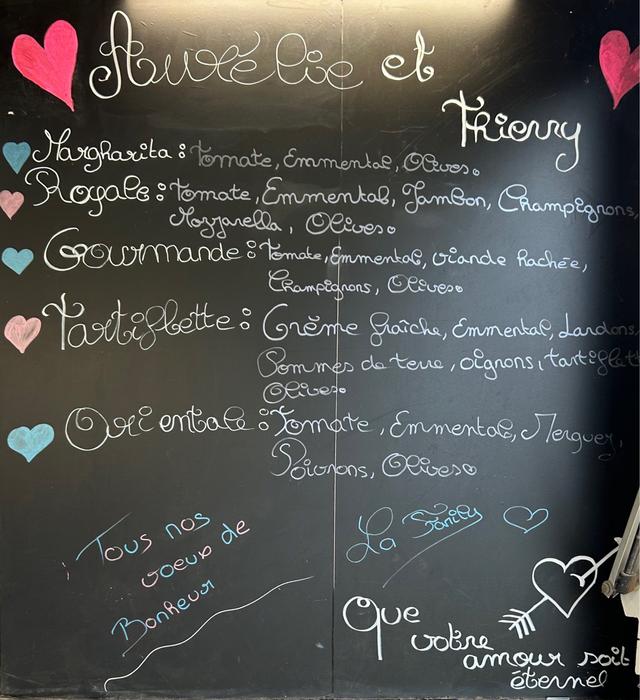 Aurélie et
Thierry
Margharita : Tomate, Emmental, Olives.
Royale : Tomate, Emmental, Jambon, Champignons,
Mozzarella, Olives.
Gourmande : Tomate, Emmental, viande hachée,
Champignons, Olives.
Tartiflette : Crème fraîche, Emmental, Lardons,
Pommes de terre, oignons, tartiflett
Olives.
Orientale : Tomate, Emmental, Merguez,
Poivrons, Olives.
Tous nos
voeux de
Bonheur
La Family
Que
votre
amour soit
éternel